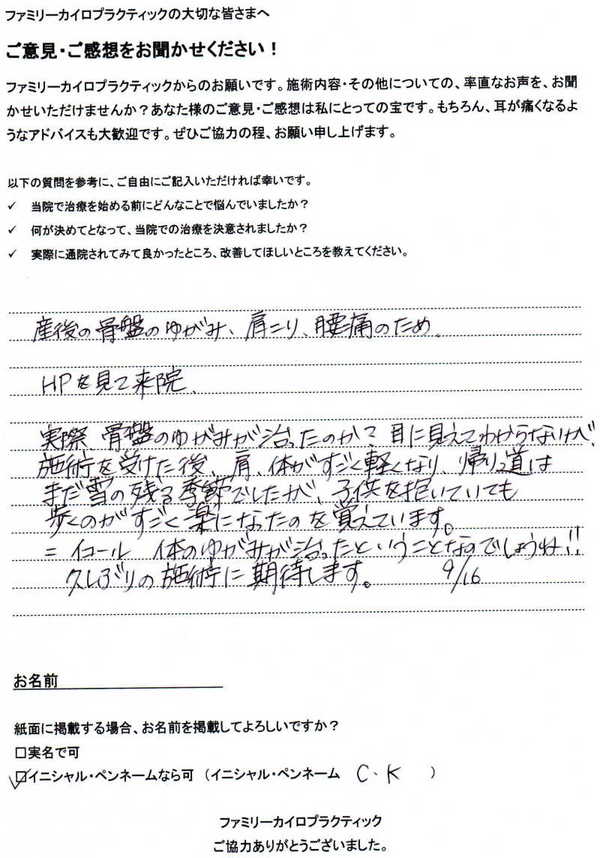 ファミリーカイロプラクティックの大切な皆さまへ
ご意見・ご感想をお聞かせください！
ファミリーカイロプラクティックからのお願いです。施術内容・その他についての、率直なお声を、お聞
かせいただけませんか？あなた様のご意見・ご感想は私にとっての宝です。もちろん、耳が痛くなるよ
うなアドバイスも大歓迎です。ぜひご協力の程、お願い申し上げます。
以下の質問を参考に、ご自由にご記入いただければ幸いです。
✓ 当院で治療を始める前にどんなことで悩んでいましたか？
✓ 何が決めてとなって、当院での治療を決意されましたか？
✓ 実際に通院されてみて良かったところ、改善してほしいところを教えてください。
産後の骨盤のゆがみ、肩こり、腰痛のため。
HPを見て来院、
実際 骨盤のゆがみが治ったのか？目に見えてわからないけど、
施術を受けた後、肩、体がすごく軽くなり、帰り道は
まだ雪の残る季節でしたが、子供を抱いていても
歩くのがすごく楽になったのを覚えています。
＝イコール 体のゆがみが治ったということなのでしょうね!!
久しぶりの施術に期待します。 9/16
お名前
紙面に掲載する場合、お名前を掲載してよろしいですか？
□実名で可
☑イニシャル・ペンネームなら可（イニシャル・ペンネーム C・K ）
ファミリーカイロプラクティック
ご協力ありがとうございました。